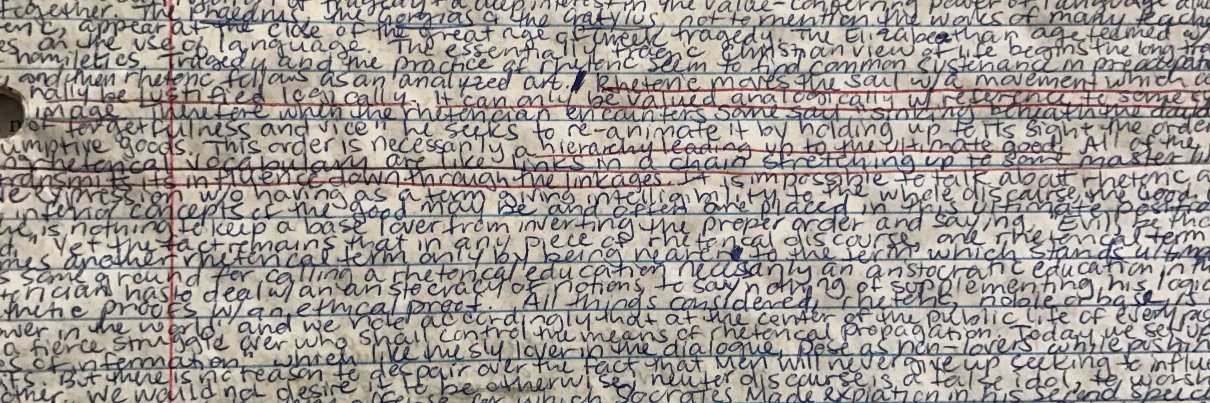 together the Phaedrus of this tragedy & a deep interest in the value-conferring power of language
appear at the close of the great age of Greek tragedy. The Elizabethan age teemed w/
on the use of language. The essentially tragic Christian view of life begins the long
homiletics. Tragedy and the practice of rhetoric seem to find common sustenance in
and then rhetoric follows as an analyzed art. Rhetoric moves the soul w/ a movement which
nally be justified logically. It can only be valued analogically w/ reference to some
Therefore when the rhetorician encounters some say "sinking beneath the
of forgetfulness and vice" he seeks to re-animate it by holding up to its sight the order
umptive goods. This order is necessarily a hierarchy leading up to the ultimate good. All of the
rhetorical vocabulary are like links in a chain stretching up to some master
transmits its influence down through the linkages. It is impossible to talk about rhetoric
expression w/o having as a term giving intelligibility to the whole discourse, the Good.
inferior concepts of the good may be and often are placed in this ultimate
is nothing to keep a base lover from inverting the proper order and saying, "Evil,
Yet the fact remains that in any piece of rhetorical discourse, one rhetorical term
another rhetorical term only by being nearer to the term which stands
some ground for calling a rhetorical education necessarily an aristocratic education in
has to deal w/ an aristocracy of notions, to say nothing of supplementing his
thetic proofs w/ an ethical proof. All things considered, rhetoric, noble or base, is
wer in the world; and we note accordingly that at the center of the public life of every
a fierce struggle over who shall control the means of rhetorical propagation. Today we set up
of information" which like the sly lover in the dialogue, pose as non-lovers while pushing
But there is no reason to despair over the fact that men will never give up seeking to
other. We would not desire it to be otherwise; neuter discourse is a false idol, to
for which Socrates made expiation in his second